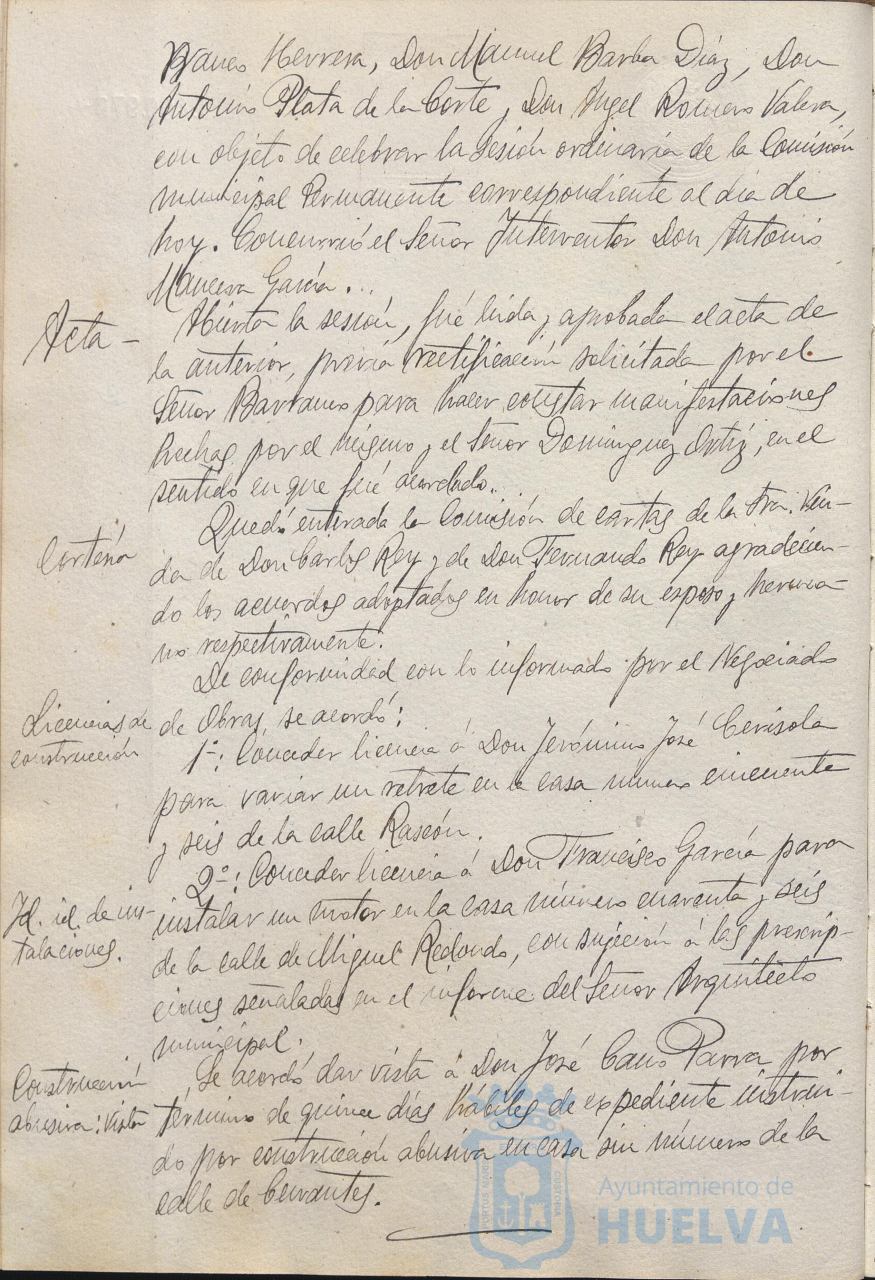 Branco Herrera, Don Manuel Barba Díaz, Don
Antonio Plata de la Corte y Don Angel Romero Valera,
con objeto de celebrar la sesión ordinaria de la Comisión
municipal Permanente correspondiente al día de
hoy. Concurrió el Señor Interventor Don Antonio
García ...
Acta -
Abierta la sesión, fué leída y aprobada el acta de
la anterior, previa rectificación solicitada por el
Señor Barranco para hacer constar manifestaciones
hechas por el mismo y el Señor Dominguez Ortiz, en el
sentido en que fué acordado.
Cortesía
Quedó enterada la Comisión de cartas de la Sra. Viu-
da de Don Carlos Rey y de Don Fernando Rey agradecien-
do los acuerdos adoptados en honor de su esposo y herma-
no respectivamente.
De conformidad con lo informado por el Negociado
de Obras, se acordó:
Licencias de
construcción
1º: Conceder licencia á Don Jerónimo José Cerisola
para variar un retrete en la casa número cincuenta
y seis de la calle Rascón.
2º: Conceder licencia á Don Francisco García para
Id. id. de ins-
talaciones.
instalar un motor en la casa número cuarenta y seis
de la calle de Miguel Redondo, con sujeción á las prescrip-
ciones señaladas en el informe del Señor Arquitecto
municipal.
Construcción
abusiva: Vista
Se acordó dar vista á Don José Cano Parra por
término de quince días hábiles de expediente instrui-
do por construcción abusiva en casa sin número de la
calle de Cervantes.
Ayuntamiento de
HUELVA